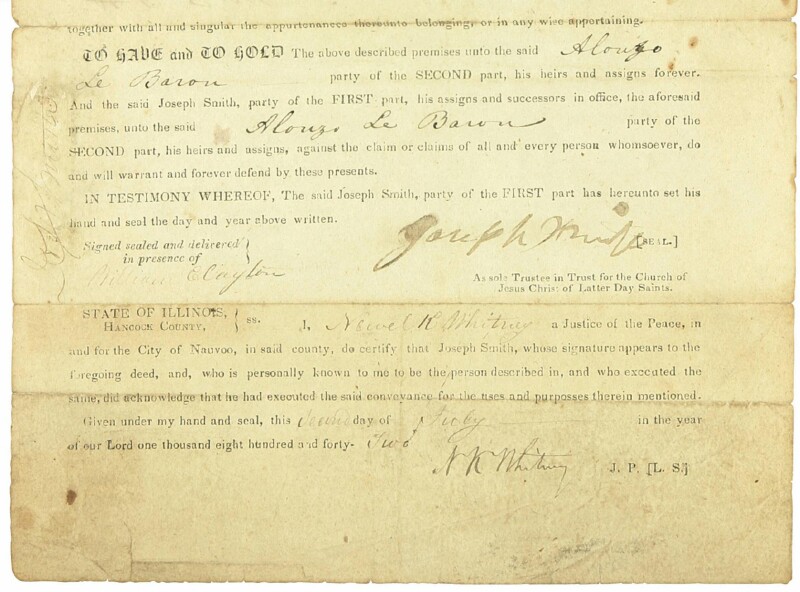 together with all and singular the appurtenances thereunto belonging, or in any wise appertaining.
TO HAVE and TO HOLD The above described premises unto the said Alonzo
Le Baron party of the SECOND part, his heirs and assigns forever.
And the said Joseph Smith, party of the FIRST part, his assigns and successors in office, the aforesaid
premises, unto the said Alonzo Le Baron party of the
SECOND part, his heirs and assigns, against the claim or claims of all and every person whomsoever, do
and will warrant and forever defend by these presents.
IN TESTIMONY WHEREOF, The said Joseph Smith, party of the FIRST part has hereunto set his
hand and seal the day and year above written.
Signed sealed and delivered
in presence of
William Clayton
Joseph Smith [SEAL.]
As sole Trustee in Trust for the Church of
Jesus Christ of Latter Day Saints.
STATE OF ILLINOIS,
HANCOCK COUNTY,
ss. I, Newel K Whitney a Justice of the Peace, in
and for the City of Nauvoo, in said county, do certify that Joseph Smith, whose signature appears to the
foregoing deed, and, who is personally known to me to be the person described in, and who executed the
same, did acknowledge that he had executed the said conveyance for the uses and purposes therein mentioned.
Given under my hand and seal, this day of July in the year
of our Lord one thousand eight hundred and forty- Two
N K Whitney J. P. [L. S.]